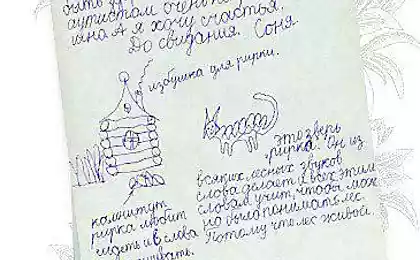 быть др
аутистам очень
шна А я хочу счастья.
До свидания. Соня.
избушка для рирки.
это зверь
рирка. Он из
всяких лесных звуков
слова делает и всех этим
словам учит, чтобы мож
но было понимать лес.
Потому что лес живой.
калошитут
рирка любит
сидеть и в слова